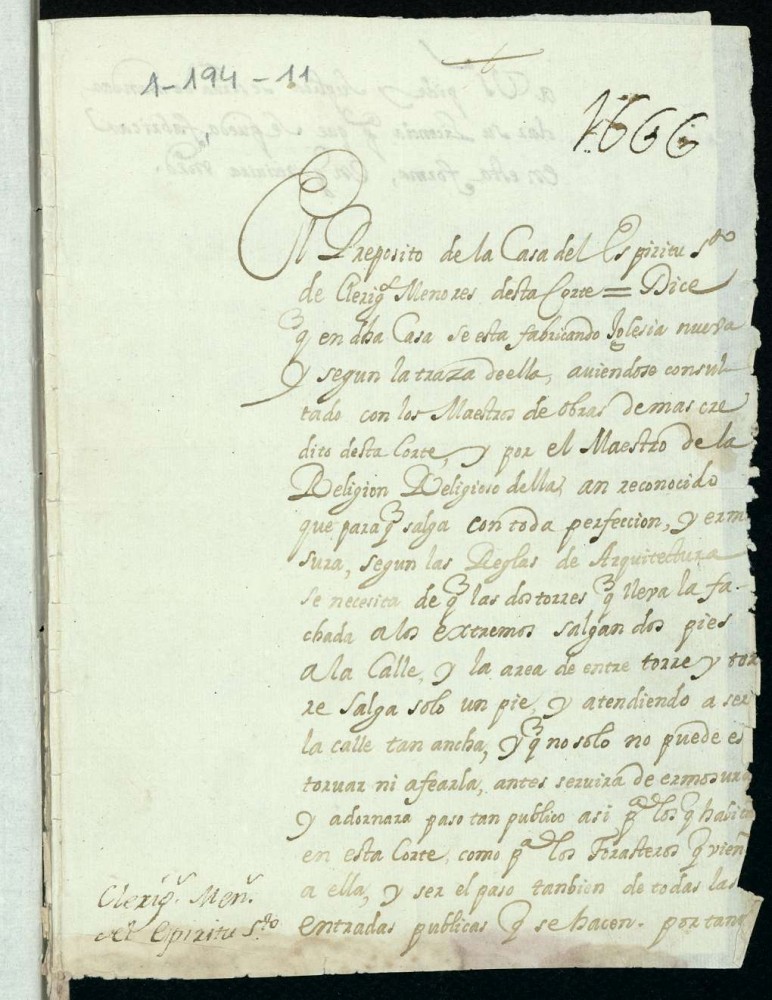 1-194-11
1666
El Preposito de la Casa del Espiritu Sto
de Clerigs Menores desta Corte = Dice
q en dha Casa se esta fabricando Iglesia nueva
y segun la traza de ella, aviendose consul
tado con los Maestros de obras de mas cre
dito desta Corte, y por el Maestro de la
Religion Religioso della, an reconocido
que para q salga con toda perfeccion, y ermo
sura, segun las Reglas de Arquitectura
se necesita de q las dos torres q lleva la fa-
chada a los extremos salgan dos pies
a la Calle, y la area de entre torre y tor
re salga solo un pie, y atendiendo a ser
la calle tan ancha, y q no solo no puede es
torvar ni afearla, antes servira de ermosura
y adornara paso tan publico asi pa los q habitan
en esta Corte, como pa los Forasteros q vienen
a ella, y ser el paso tanbien de todas las
entradas publicas q se hacen. por tanto
Clerigs. Mens.
del Espiritu Sto